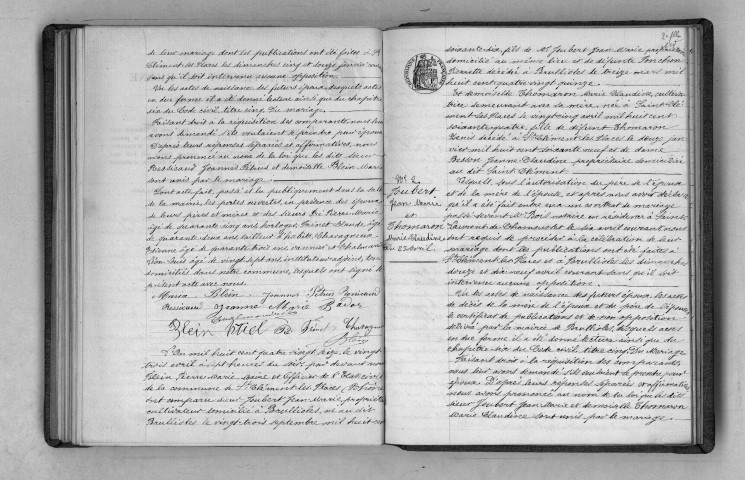 de leur mariage dont les publications ont été faites à St
Clément les Places les dimanches cinq et douze janvier
sans qu'il soit intervenu aucune opposition.
Vu les actes de naissance des futurs époux, desquels actes
en due forme il a été donné lecture ainsi que du chapitre
six du Code civil, titre cinq, Du mariage.
Faisant droit à la réquisition des comparants, nous leur
avons demandé s'ils voulaient se prendre pour époux
D'après leurs réponses séparées et affirmatives, nous
avons prononcé au nom de la loi que les dits sieur
Joannès Pétrus et demoiselle Blein Marie
sont unis par le mariage.
Dont acte fait, passé et lu publiquement dans la salle
de la mairie, les portes ouvertes, en présence des époux,
de leurs pères et mères et des sieurs Marie
âgé de quarante cinq ans horloger, Claude âgé
de quarante deux ans tailleur d'habits, Charagneux
Etienne âgé de quarante trois ans
Jean âgé de vingt sept ans instituteur adjoint, tous
domiciliés dans notre commune, lesquels ont signé le
présent acte avec nous.
Maria Blein Joannès Pétrus
Jeanne Marie
Blein Stiel
L'an mil huit cent quatre vingt seize, le vingt
trois avril à sept heures du soir, par devant nous
Blein Pierre Marie, maire et officier de l'Etat civil
de la commune de St Clément les Places, Rhône
sont comparus sieur Joubert Jean Marie, propriétaire
cultivateur domicilié à Brullioles, né au dit
Brullioles le vingt trois septembre mil huit cent
2e flle
soixante dix, fils de Mr Joubert Jean Marie propriétaire
domicilié au même lieu et de défunte Ponchon
Pierrette décédée à Brullioles le treize mars mil
huit cent quatre vingt quinze.
Et demoiselle Thomaron Marie Claudine, cultiva
trice demeurant avec sa mère, née à Saint Clé
ment les Places le vingt cinq avril mil huit cent
soixante quatre, fille de défunt Thomaron
Denis décédé à St Clément les Places le douze jan
vier mil huit cent soixante neuf et de dame
Besson Jeanne Claudine propriétaire domiciliée
au dit Saint Clément.
No 2
Joubert
Jean Marie
et
Thomaron
Marie Claudine
du 23 avril
Lesquels, sous l'autorisation du père de l'époux
et de la mère de l'épouse, et après nous avoir déclaré
qu'il a été fait entre eux un contrat de mariage
passé devant Me notaire en résidence à Saint
Laurent de Chamousset le six avril courant nous
ont requis de procéder à la célébration de leur
mariage dont les publications ont été faites à
St Clément les Places et à Brullioles les dimanches
douze et dix neuf avril courant sans qu'il soit
intervenu aucune opposition.
Vu les actes de naissance des futurs époux, les actes
de décès de la mère de l'époux et du père de l'épouse,
le certificat de publications et de non opposition
délivré par la mairie de Brullioles, desquels actes
en due forme il a été donné lecture ainsi que du
chapitre six du Code civil, titre cinq, Du Mariage
Faisant droit à la réquisition des comparants,
nous leur avons demandé s'ils veulent se prendre pour
époux D'après leurs réponses séparées et affirmatives
nous avons prononcé au nom de la loi que les dits
sieur Joubert Jean Marie et demoiselle Thomaron
Marie Claudine sont unis par le mariage.